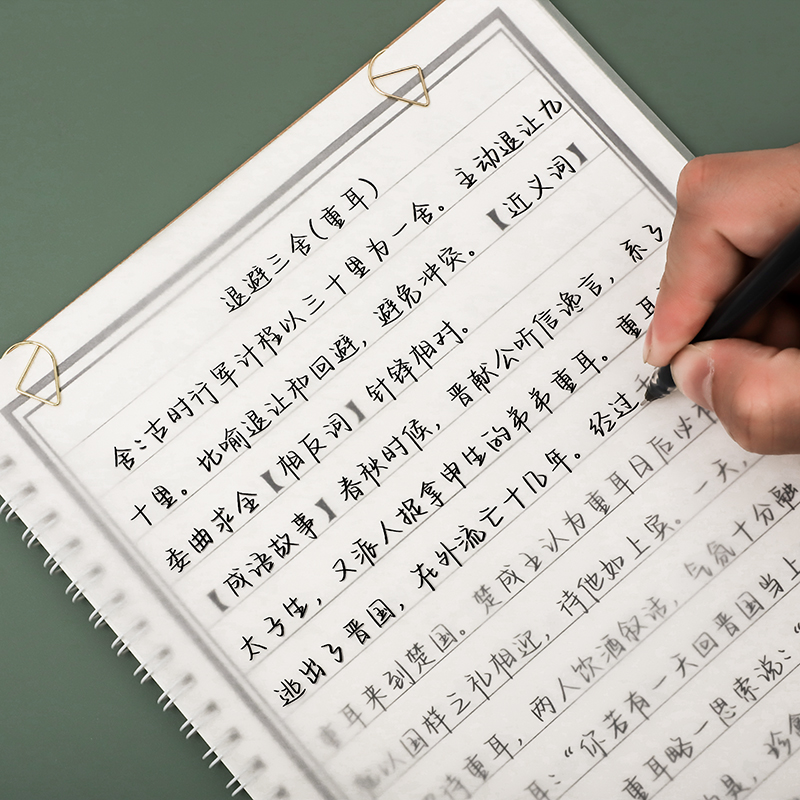 退避三舍(重耳)
舍:古时行军计程以三十里为一舍。主动退让九
十里。比喻退让和回避,避免冲突。【近义词】
委曲求全【相反词】针锋相对。
【成语故事】春秋时候,晋献公听信谗言,杀了
太子生,又派人捉拿申生的弟弟重耳。重耳
逃出了晋国,在外流亡十几年。经过
重耳来到楚国。楚成王认为重耳日后必有
以国样之礼相迎,待他如上宾。一天,
待重耳,两人饮酒叙话,气氛十分融
耳:“你若有一天回晋国当上
重耳略一思索说:“
是,珍禽